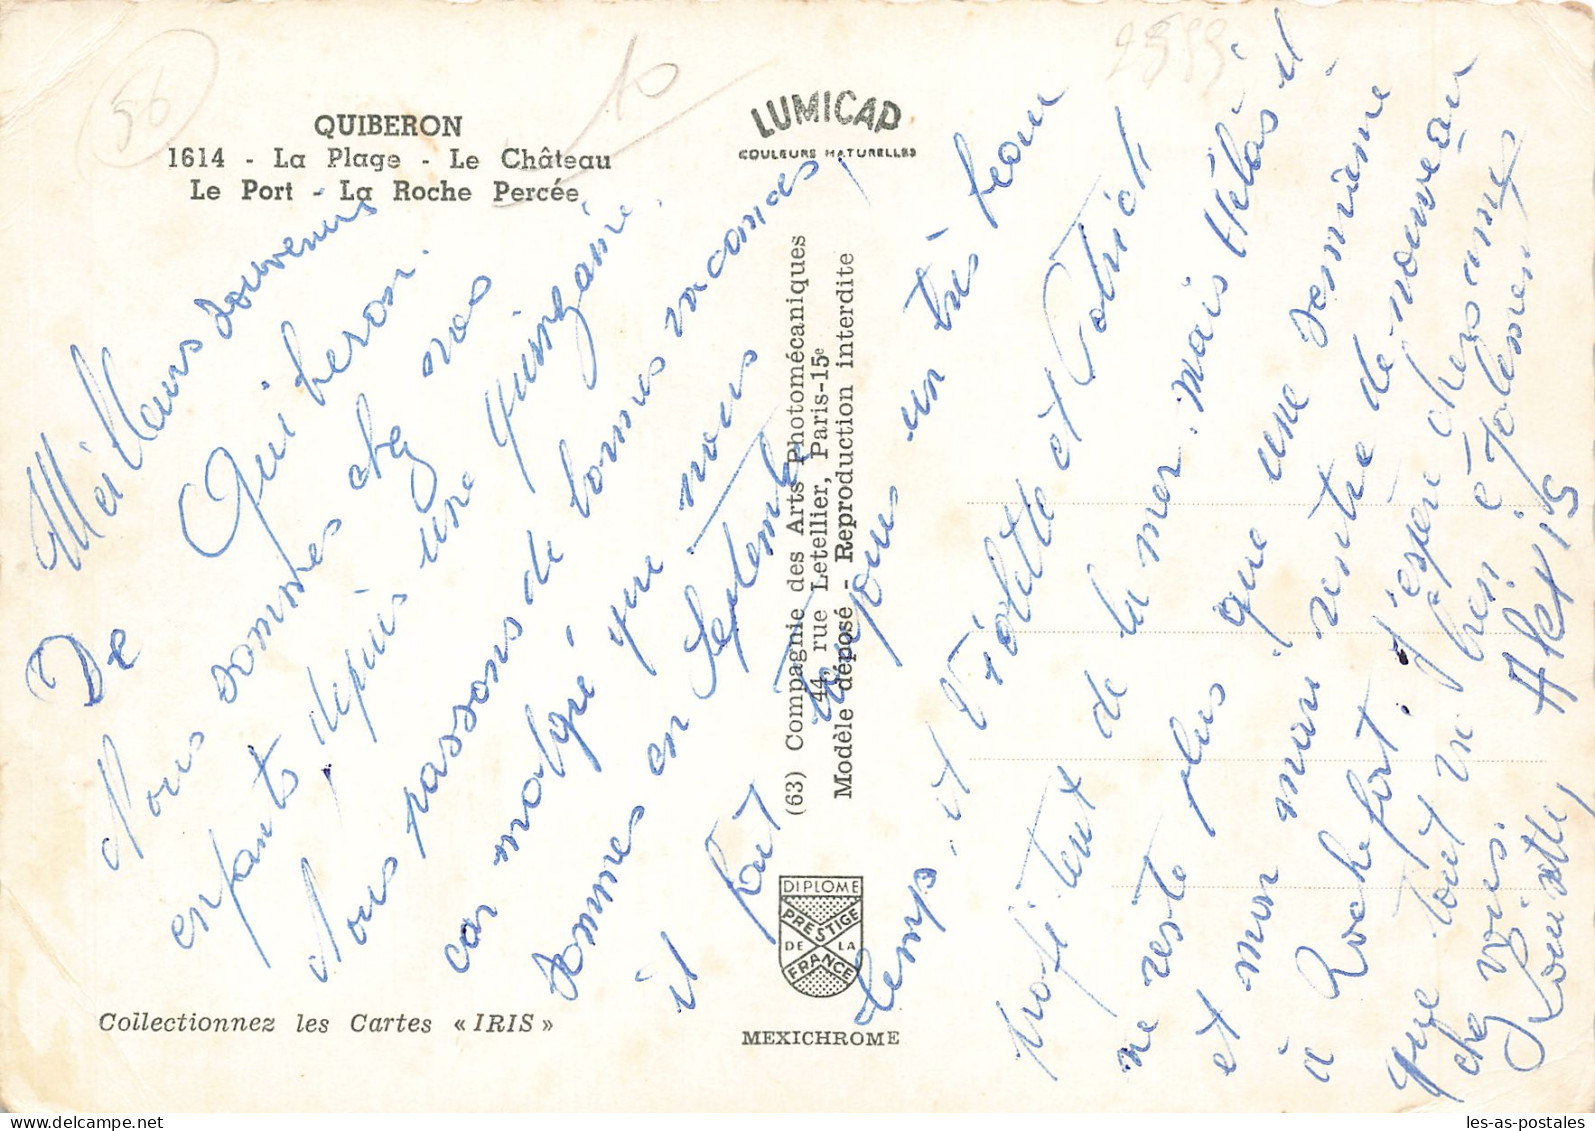 56
10
QUIBERON
1614 - La Plage - Le Château
Le Port - La Roche Percée
LUMICAP
COULEURS NATURELLES
Meilleurs souvenirs
De Quiberon.
Nous sommes chez nos
enfants depuis une quinzaine.
Nous passons de bonnes vacances,
car malgré que nous
sommes en Septembre
il fait toujours un très beau
temps, et Violette et Patrick
profitent de la mer. mais Hélas il
ne reste plus que une semaine
et mon mari rentre de nouveau
à Rochefort. J'espère chers amis
que tout va bien également
chez vous.
Louisette, Alexis
(63) Compagnie des Arts Photomécaniques
44, rue Letellier, Paris-15e
Modèle déposé - Reproduction interdite
DIPLOME
PRESTIGE
DE LA
FRANCE
MEXICHROME
Collectionnez les Cartes « IRIS »
les-as-postales